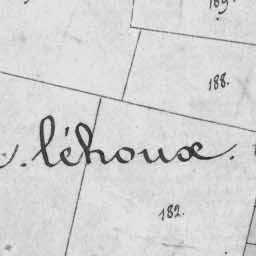 189.
188.
léhoux.
182.